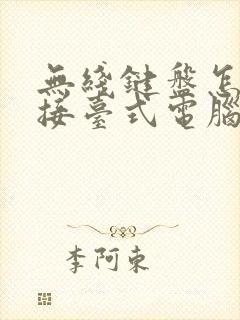 無綫鍵盤怎
接臺式電腦
李阿東